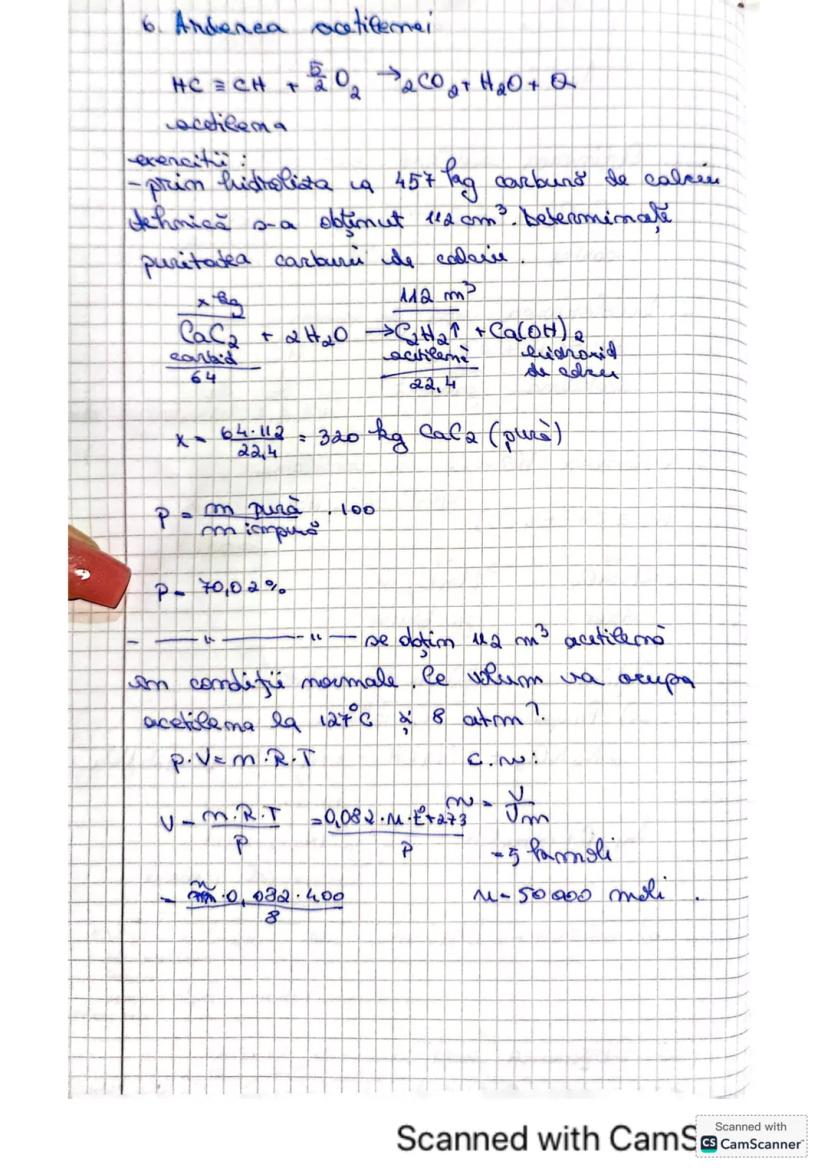 6. Arderea acetilenei
HC ≡ CH + 5/2 O2 → 2CO2 + H2O + Q
acetilena
exercitii :
- prin hidroliza a 457 kg carbură de calciu
tehnică s-a obținut 112 cm³. Determinați
puritatea carburii de calciu.
x kg 112 m³
CaC2 + 2H2O → C2H2↑ + Ca(OH)2
carbid acetilenă hidroxid
64 22,4 de calciu
x = 64·112 / 22,4 = 320 kg CaC2 (pură)
p = m pură / m impură · 100
p = 70,02%
- — " — " — se obțin 112 m³ acetilenă
în condiții normale. Ce volum va ocupa
acetilena la 127°C și 8 atm?
p·V = n·R·T c.n:
V = n·R·T / p = 0,082·n·t+273 / p n = V / Vm
= 5 kmoli
= n·0,082·400 / 8 n = 50000 moli.
Scanned with CamS
Scanned with
CS CamScanner